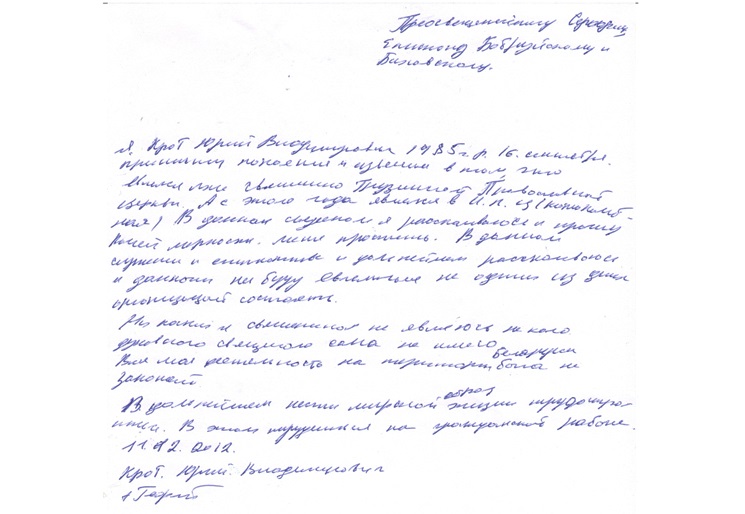 Преосвященнейшему Серафиму
Епископу Бобруйскому и
Быховскому.
Я Крот Юрий Владимирович 1985 г.р. 16. сентября.
приношу покаяние и извинения в том что
священно Грузинской Православной
церкви. А с этого года являлся в И.П. ц (неканонич
ная) В данном я раскаиваюсь и прошу
Вашей милости. меня простить. В данном
служении и и дальнейшем раскаиваюсь
и данности не буду являться не один из
организаций состоять.
Ни каким и священником не являюсь не кого
духовного священного сана не имею
Вся моя деятельность на территории Беларуси была не
законой
В дальнейшем нести мирской образ жизни
В этом на гражданской работе.
11.02.2012.
Крот. Юрий. Владимирович